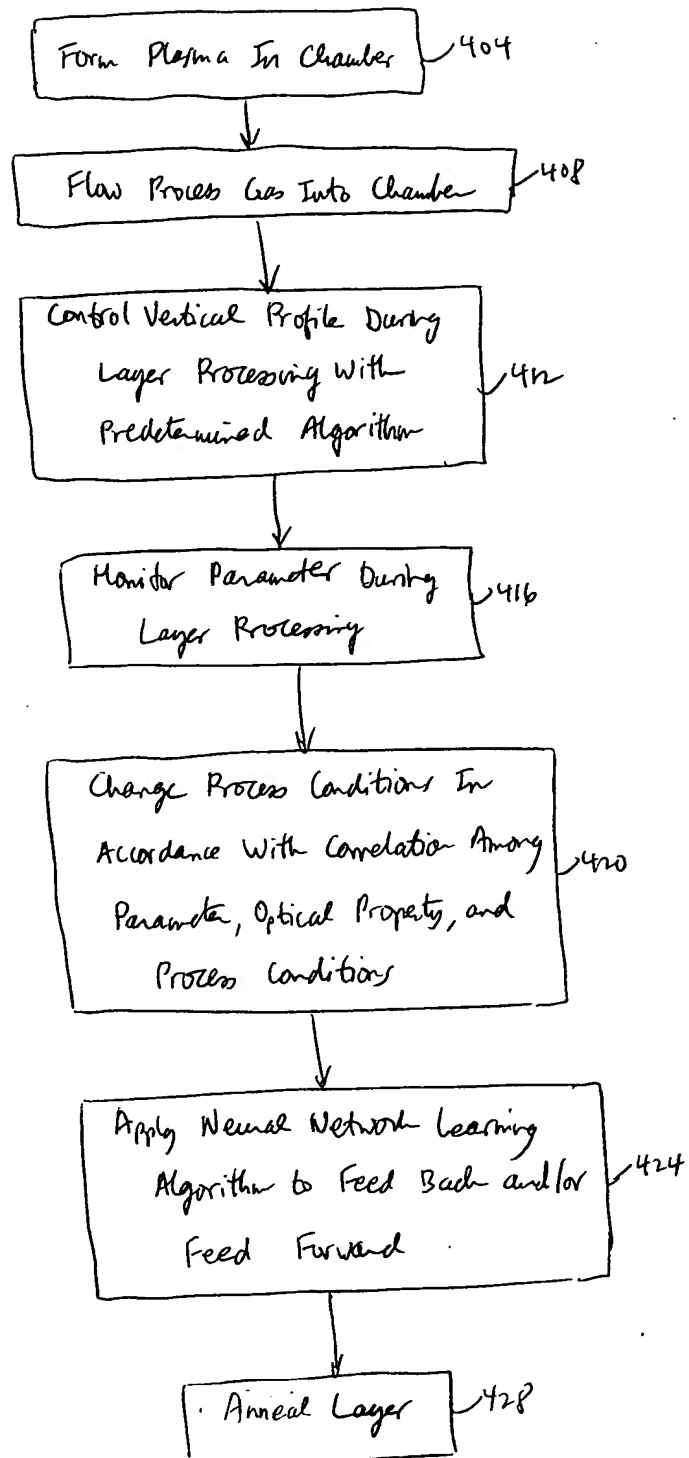 Form Plasma In Chamber
404
Flow Process Gas Into Chamber
408
Control Vertical Profile During
Layer Processing With
Predetermined Algorithm
412
Monitor Parameter During
Layer Processing
416
Change Process Conditions In
Accordance With Correlation Among
Parameter, Optical Property, and
Process Conditions
420
Apply Neural Network Learning
Algorithm to Feed Back and/or
Feed Forward
424
Anneal Layer
428